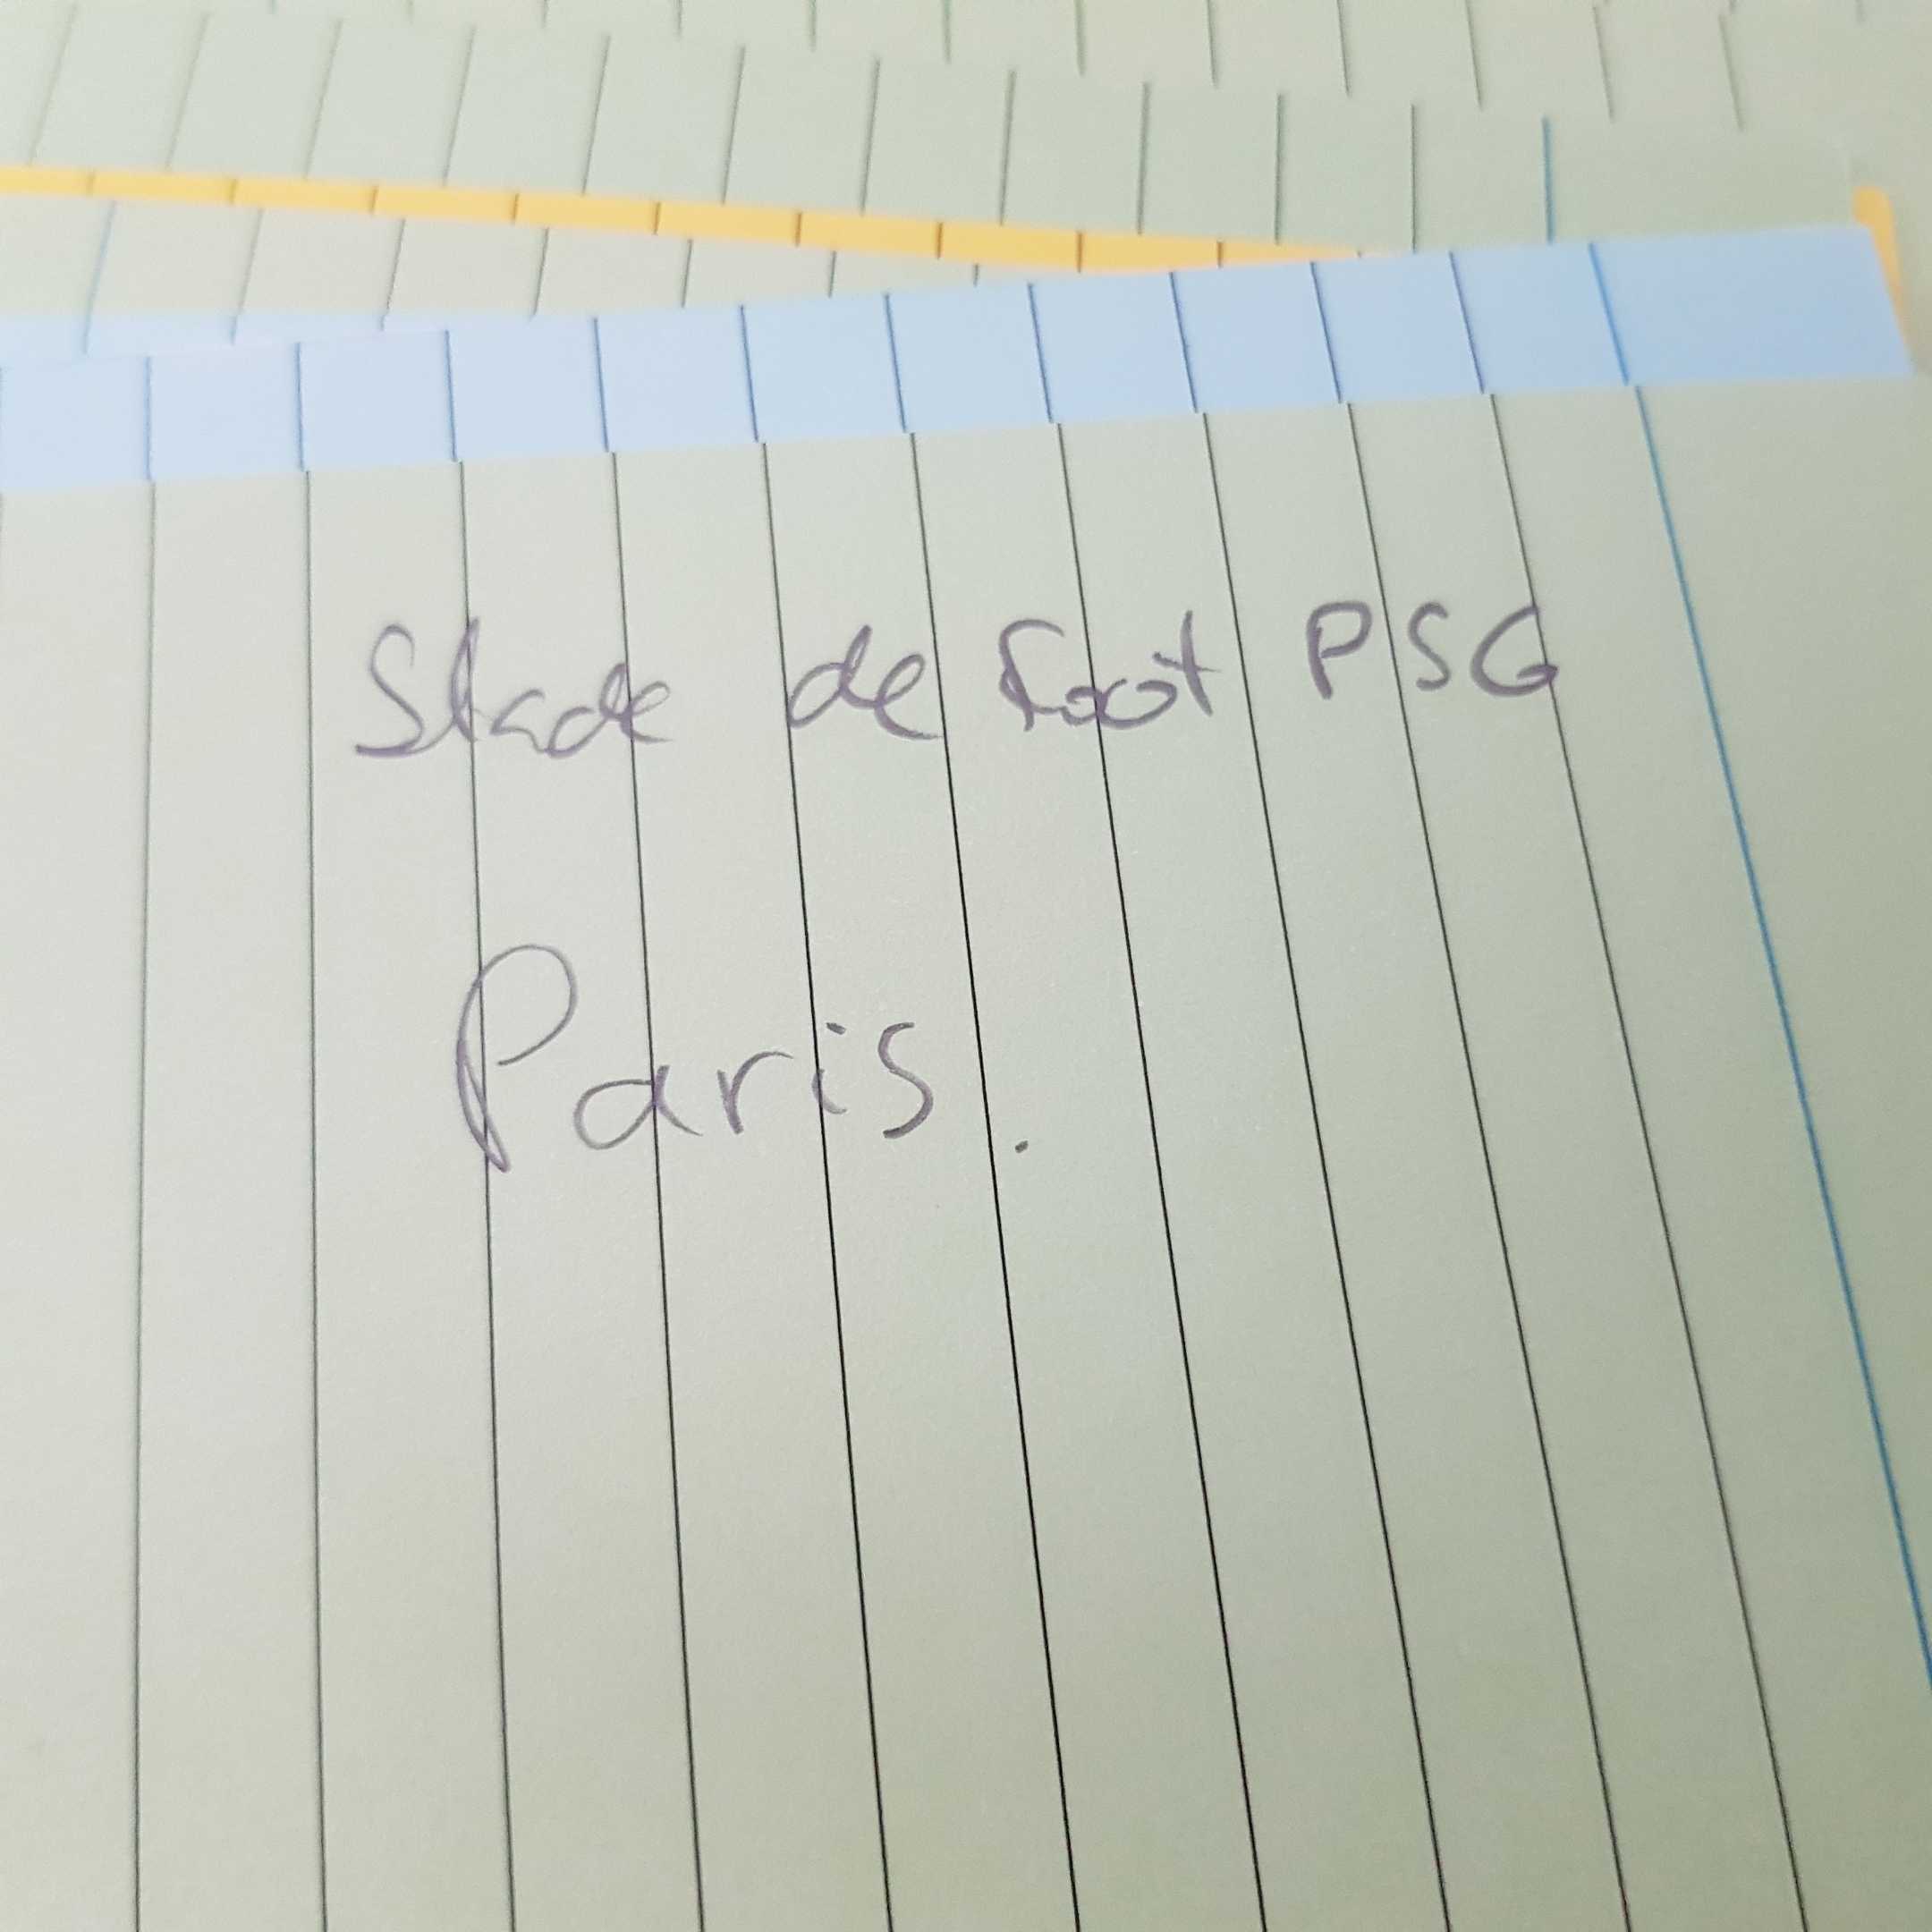 Stade de foot PSG
Paris.